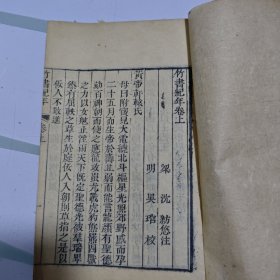 竹書紀年卷上
梁 沈約附注
明 吳琯校
黃帝軒轅氏
母曰附寶見大電繞北斗樞星光照郊野感而孕
二十五月而生帝於壽丘弱而能言龍顏有聖德
劾百神朝而使之應龍攻蚩尤戰虎豹熊羆四獸
之力以女魃止淫雨天下既定聖德光被羣瑞畢
臻有屈軼之草生於庭佞人入朝則草指之是以
佞人不敢進
竹書紀年 卷上